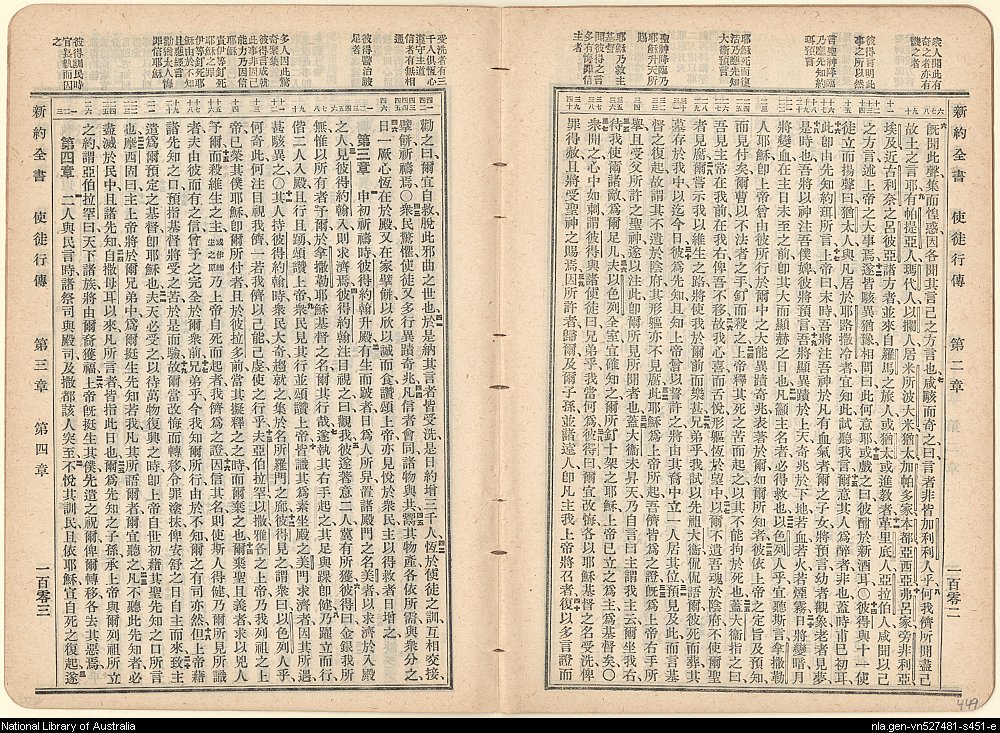 新約全書　使徒行傳　第二章　一百零二
旣聞此聲集而惶惑因各聞其言己之方言也咸駭而奇之曰言者非皆加利利人乎何我儕所聞盡己
故土之言耶有帕提亞人瑪代人以攔人居米所波大米猶太加帕多家本都亞西亞弗呂家旁非利亞
埃及近古利奈之呂彼亞諸方者並來自羅馬之旅人或猶太或進教者革里底人亞拉伯人咸聞以己
之方言言述上帝之大事焉遂皆駭異猶豫相問曰此何意耶或戲之曰彼酣於新酒耳○彼得與十一使
徒立而揚聲曰猶太人與凡居於耶路撒冷者宜知此試聽我言爾意其人爲醉者非也蓋時甫巳初耳
此卽由先知約珥所言上帝曰末時吾將注吾神於凡有血氣者爾之子女將預言幼者觀象老者見夢
是時也吾將以神注吾僕婢而彼將預言吾將顯異蹟於上天奇兆於下地若血若火若煙霧日將變暗月
將變血在主日未至之前卽其大而顯赫之日也凡籲主名者必得救也以色列人乎宜聽斯言拿撒勒
人耶穌卽上帝曾由彼所行於爾中之大能異蹟奇兆表著於爾如爾所知者彼依上帝之定旨及預知
而見付矣爾曹以不法者之手釘而殺之上帝釋其死之苦而起之以其不能拘於死也蓋大衞指之曰
吾見主常在我前在我右俾吾不移故我心喜而舌悅形軀將居於望中以爾不遺吾魂於陰府不使爾聖
者見腐爾嘗示我以維生之路將使我於爾前而樂甚兄弟乎我試以先祖大衞侃侃語爾彼死而葬其
墓存於我中以迄今日彼爲先知且知上帝嘗以誓許之將由其裔中立一人居其位預見及此而言基
督之復起故謂其不遺於陰府其形軀亦不見腐此耶穌爲上帝所起吾儕皆爲之證旣爲上帝右手所
舉且受父所許之聖神遂以注此卽爾所見所聞者也蓋大衞未昇天乃自言曰主謂我主云爾坐我右
待我使爾諸敵爲爾足几夫以色列全室宜確知之爾所釘十架之耶穌上帝已立之爲主爲基督矣○
衆聞之心中如刺謂彼得與諸使徒曰兄弟乎我當何爲彼得曰爾宜改悔各以耶穌基督之名受洗俾
罪得赦且將受聖神之賜焉因所許者歸爾及爾子孫並諸遠人卽凡主我上帝將召者復以多言證而
彼得訓民時
官長執而囚
之
新約全書　使徒行傳　第三章　第四章　一百零三
勸之曰爾宜自救脫此邪曲之世也於是納其言者皆受洗是日約增三千人恆於使徒之訓互相交接
擘餅祈禱焉○衆民驚懼使徒又多行異蹟奇兆凡信者會同諸物與共鬻其物產各依所需與衆分之
日一厥心恆在於殿又在家擘餅以欣以誠而食讚頌上帝亦見悅於衆民主以得救者日增之
第三章　申初祈禱時彼得約翰升殿有生而跛者日爲人所舁置諸殿門之名美者以求濟於入殿
之人見彼得約翰入則求濟焉彼得約翰注目視之曰觀我彼遂著意二人冀有所獲彼得曰金銀我所
無惟以所有者予爾於拿撒勒耶穌基督之名爾其行哉遂執其右手起之其足與踝卽健乃躍立而行
偕二人入殿且行且頌讚上帝衆民見其行並頌讚上帝皆識其爲素坐殿之美門求濟者因其所遇
甚駭異之○其人持彼得約翰時衆民大奇趨就之集於名所羅門之廊彼得見之謂衆曰以色列人乎
何奇此何注目視我儕一若我儕以己能己虔使之行乎夫亞伯拉罕以撒雅各之上帝乃我列祖之上
帝已榮其僕耶穌卽爾所付者且於彼拉多前當其擬釋之之時而爾棄之也爾棄聖且義者求以兇人
予爾而殺維生之主乃上帝自死而起者我儕爲之證因信其名則使斯人得健乃爾所見所識
者夫由彼而有之信曾予之完全於爾衆前兄弟乎今我知爾所行由於不知爾之有司亦然但上帝藉
諸先知之口預指基督將受之苦於是而驗故爾當改悔而轉移令罪塗抹俾安舒之日自主而來致主
遣爲爾預定之基督卽耶穌也夫天必受之以待萬物復興之時卽上帝自世初藉其聖先知之口所言
也摩西固曰主上帝將於爾兄弟中爲爾挺生先知若我凡其所語爾者爾宜聽之凡不聽此先知者必
盡滅於民中且諸先知自撒母耳以來凡所言者皆指此日也爾爲先知之子孫承上帝與爾列祖所立
之約謂亞伯拉罕曰天下諸族將由爾裔獲福上帝旣挺生其僕先遣之祝爾俾爾轉移各去其惡焉
第四章　二人與民言時諸祭司與殿司及撒都該人突至不悅其訓民且依耶穌宣自死之復起遂
National Library of Australia
nla.gen-vn527481-s451-e
449